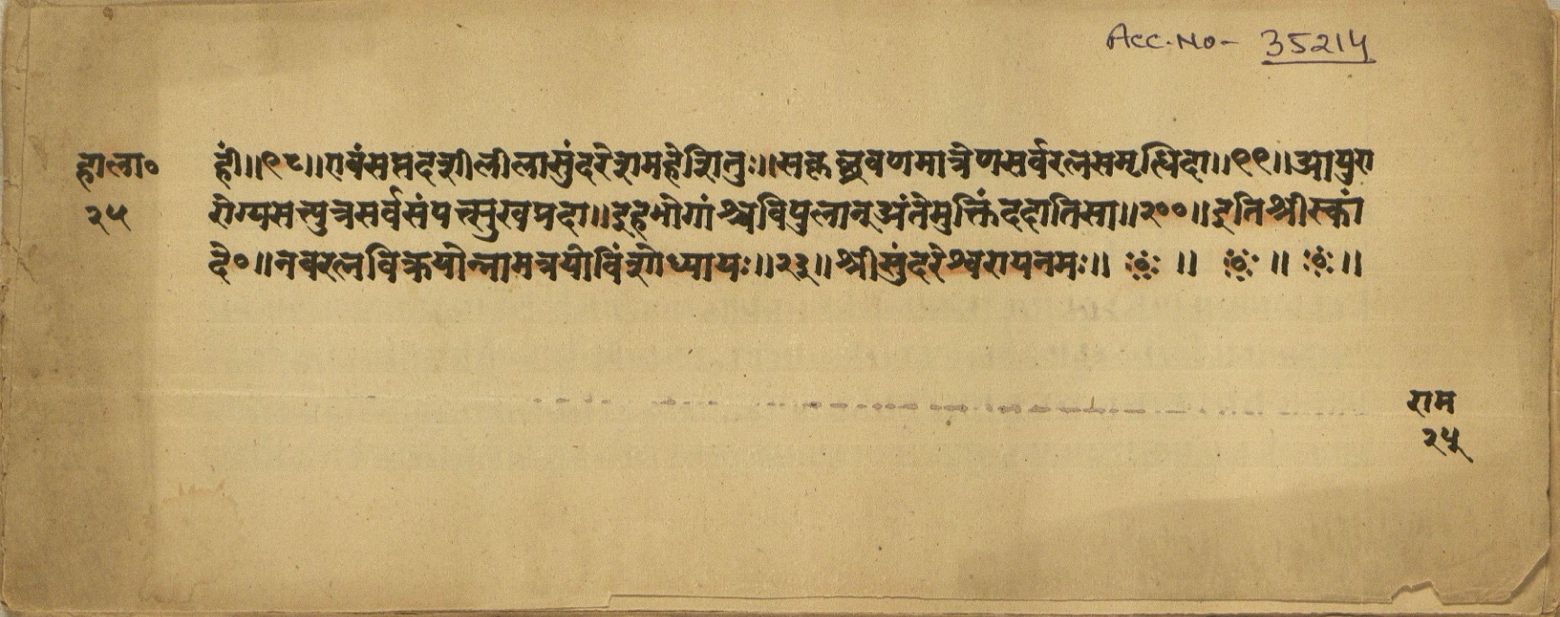 Acc. No - 35214
हाला०
२५
हं॥९८॥एवंसप्तदशीलीलासुंदरेशमहेशितुः॥सकृच्छ्रवणमात्रेणसर्वरत्नसमृद्धिदा॥९९॥आयुरा
रोग्यसत्पुत्रसर्वसंपत्सुखप्रदा॥इहभोगांश्चविपुलान्अंतेमुक्तिंददातिसा॥२००॥इतिश्रीस्कां
दे०॥नवरत्नविक्रयोन्नामत्रयोविंशोध्यायः॥२३॥श्रीसुंदरेश्वरायनमः॥ ॥ ॥ ॥
राम
२५